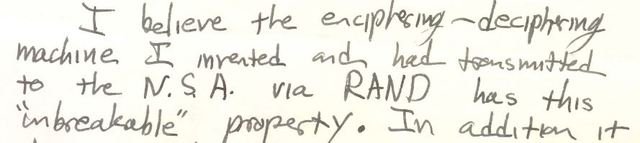 I believe the enciphering-deciphering
machine I invented and had transmitted
to the N.S.A. via RAND has this
"unbreakable" property. In addition it